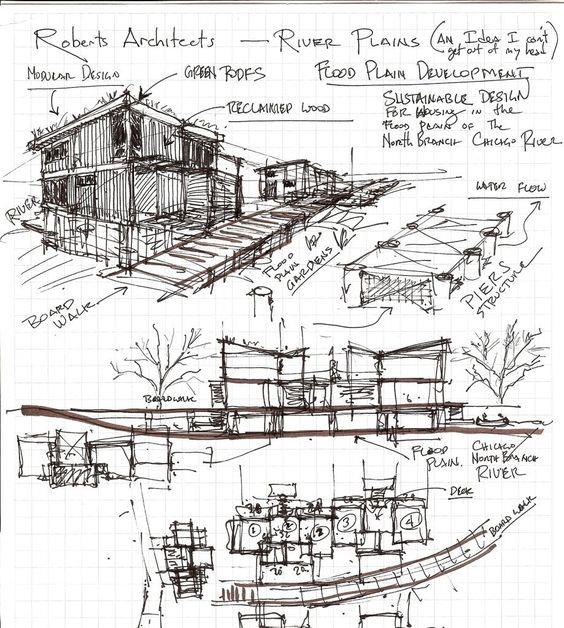 Roberts Architects — River Plains (An Idea I can't
get out of my head)
Modular Design
Green Roofs
Flood Plain Development
Reclaimed Wood
Sustainable Design
For Housing in the
Flood Plains of The
North Branch Chicago River
River
Water Flow
Flood
Plain
Gardens
Piers
Structure
Board
Walk
Boardwalk
Flood
Plain.
Chicago
North Branch
River
Deck
Boardwalk
1
2
2
3
4